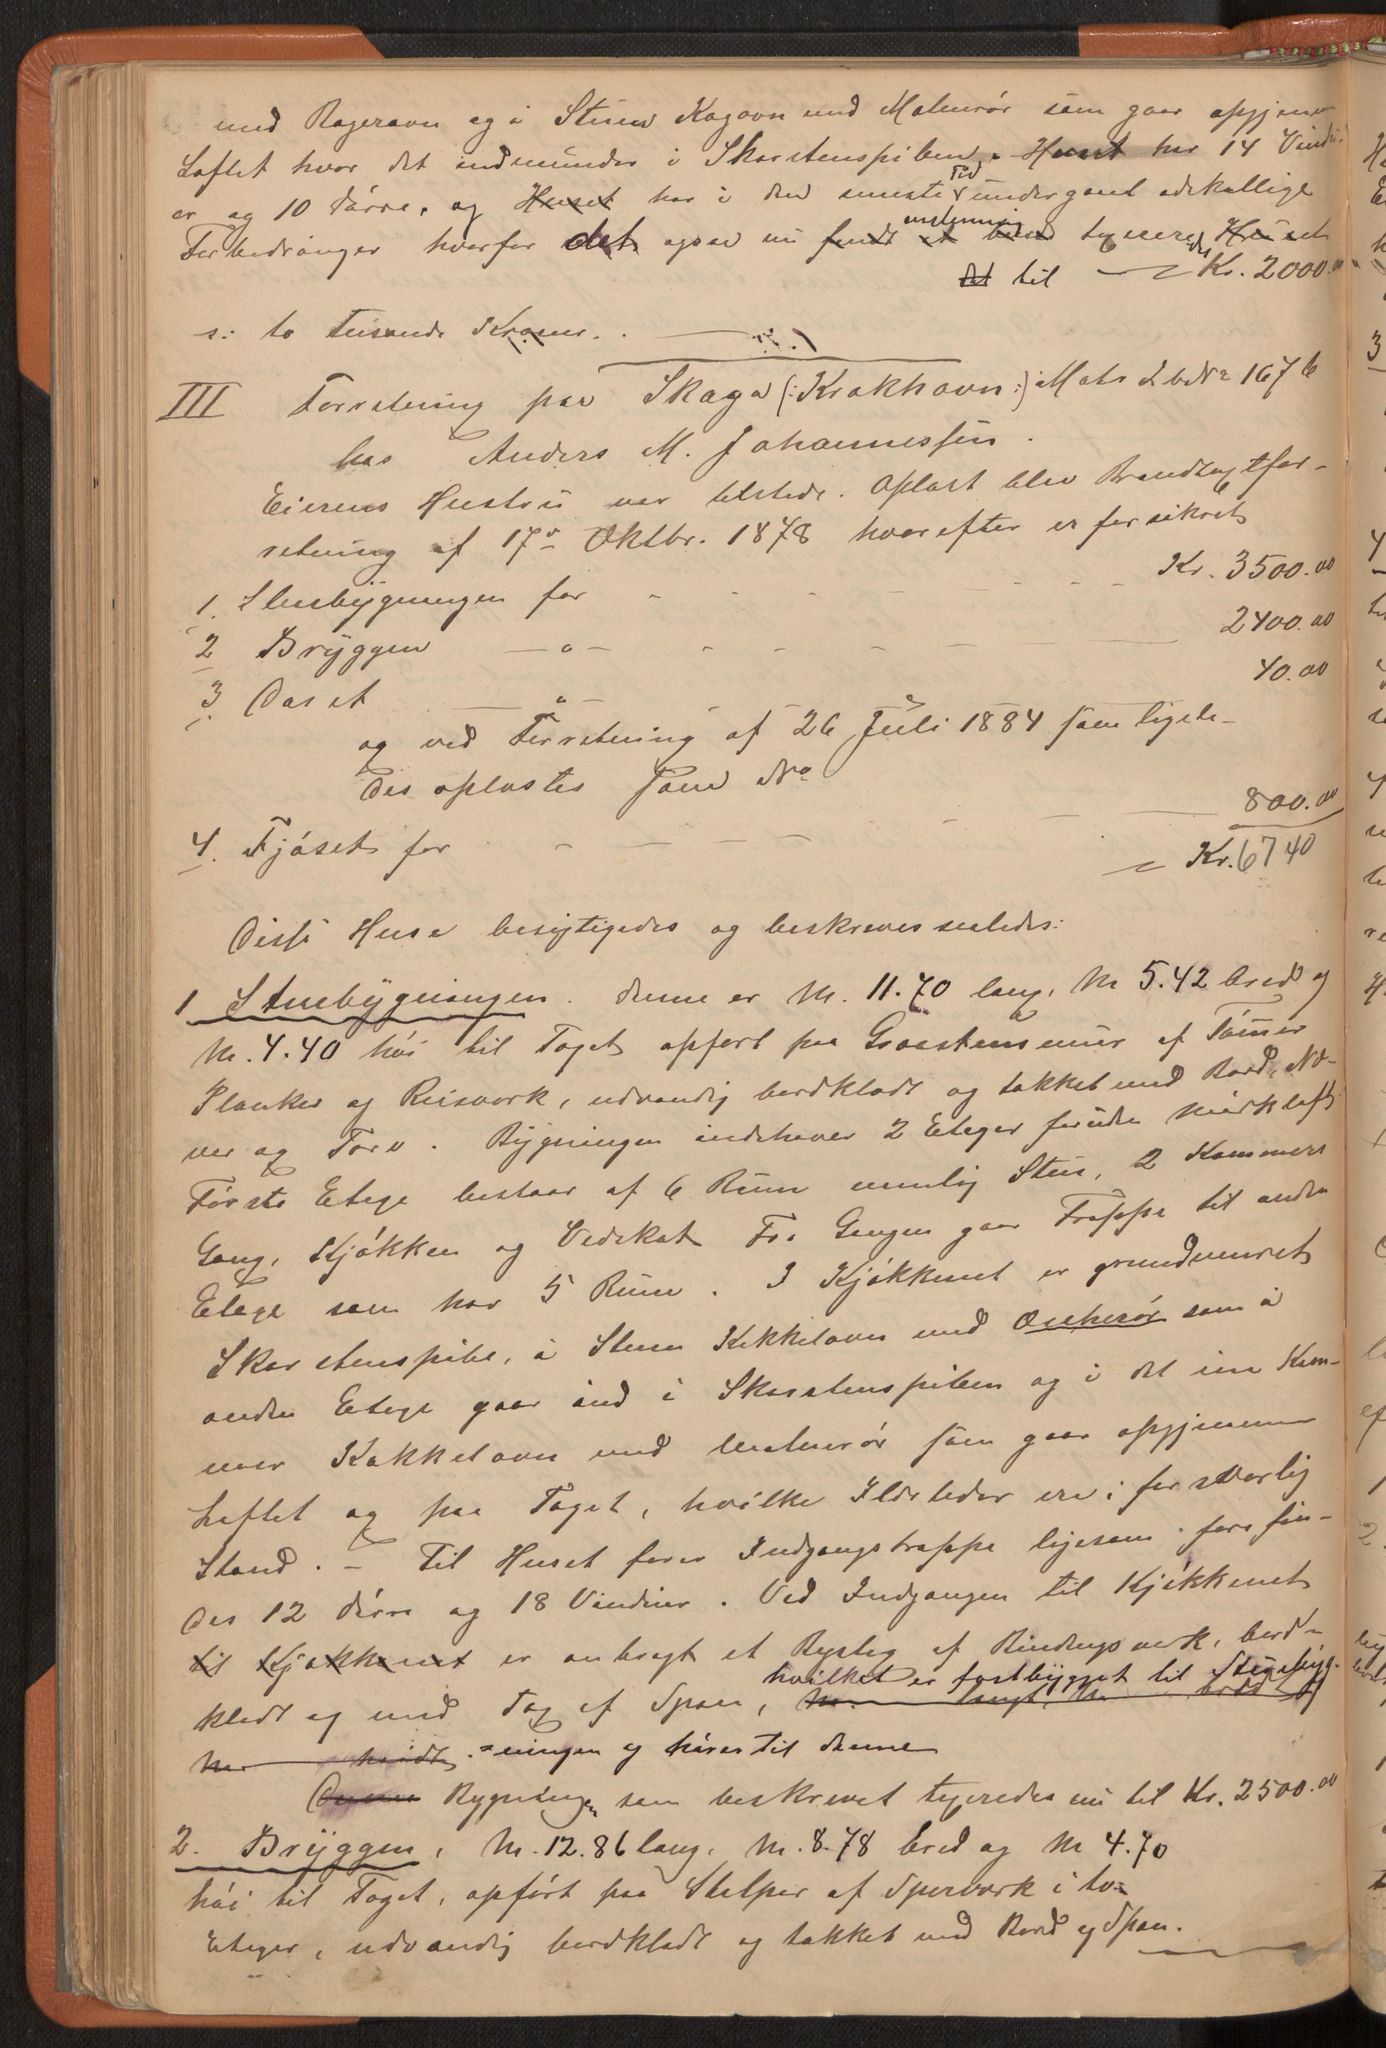 med Bagerovn og i Stuen Kogovn med Malmrør som gaar opgjennem
Loftet hvor det indmunder i Skorstenspiben. Huset har 14 Vindu-
er og 10 Dørre, og Huset har i den seneste Tid undergaaet adskillige
Forbedringer hvorfor det ogsaa nu fandt et taxeredes Huset
Det til Kr. 2000.00
s: to Tusinde Kroner.
III Forretning paa Skaga (: Krakhavn :) Matr Lb No 1676
hos Anders M. Johannessen.
Eierens Hustru var tilstede. Oplæst blev Brandtaxtfor-
retning af 17de Oktbr. 1878 hvorefter er forsikret
1. Stuebygningen for Kr. 3500.00
2 Bryggen -"- 2400.00
3. Das et " 40.00
og ved Forretning af 26 Juli 1884 som ligele-
des oplæstes som No
4. Fjøset for 800.00
Kr. 6740
Disse Huse besigtigedes og beskreves saaledes:
1 Stuebygningen. denne er M. 11.70 lang, M 5.42 bred og
M. 4.40 høi til Taget opført paa Graastensmur af Tømmer
Planker og Reisverk, udvendig bordklædt og tækket med Bord, Næ-
ver og Torv. Bygningen indehaver 2 Etager foruden Mørkloft
Første Etage bestaar af 6 Rum nemlig Stue, 2 Kammers
Gang, Kjøkken og Vedskot Fra Gangen gaar Trappe til anden
Etage som har 5 Rum. I Kjøkkenet er grundmuret
Skorstenspibe, i Stuen Kakkelovn med som i
anden Etage gaar ind i Skorstenspiben og i det ene Kam-
mer Kakkelovn med Malmrør som gaar opgjennem
Loftet og paa Taget, hvilke Ildsteder ere i forsvarlig
Stand. – Til Huset fører Indgangstrappe ligesom forefin-
des 12 Dørre og 18 Vinduer. Ved Indgangen til Kjøkkenet
til Kjøkkenet er anbragt et Byslag af Bindingsverk, bord-
klædt og med Tag af Spaan, hvilket er fastbygget til Stuebyg-
M. langt, M. bredt og
M. høidt =ningen og hører til denne
Denne Bygningen som beskrevet taxeredes nu til Kr. 2500.00
2. Bryggen, M. 12.86 lang, M. 8.78 bred og M 4.70
høi til Taget, opført paa Stolper af Sperverk i to
Etager, udvendig bordklædt og tækket med Bord og Spaan.